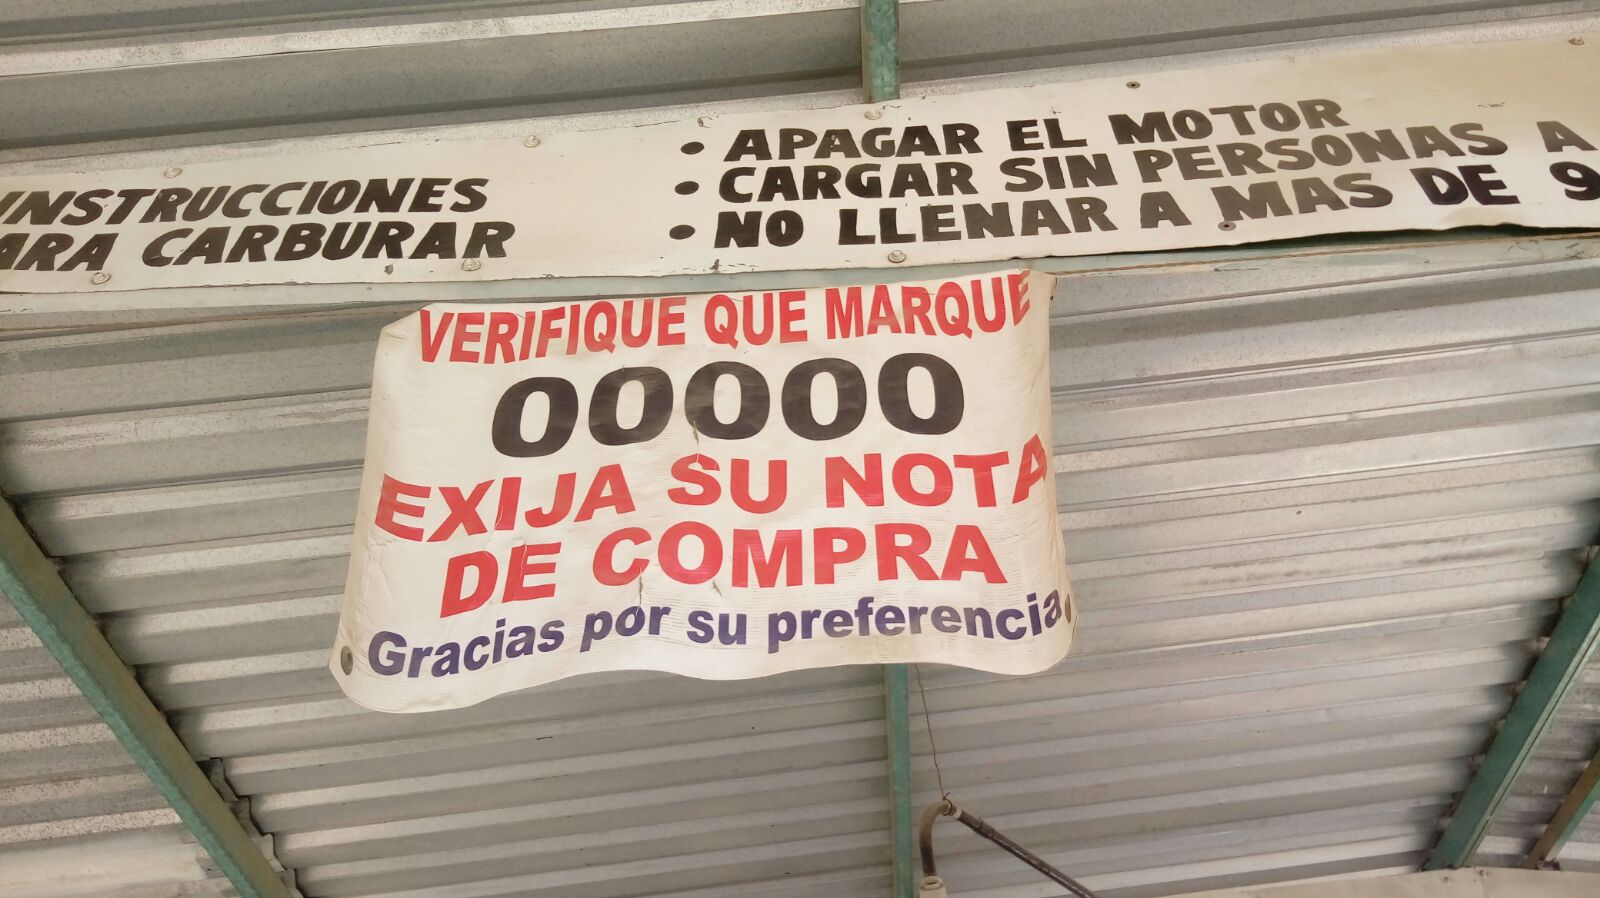 INSTRUCCIONES
ARA CARBURAR
• APAGAR EL MOTOR
• CARGAR SIN PERSONAS A
• NO LLENAR A MAS DE 9
VERIFIQUE QUE MARQUE
00000
EXIJA SU NOTA
DE COMPRA
Gracias por su preferencia